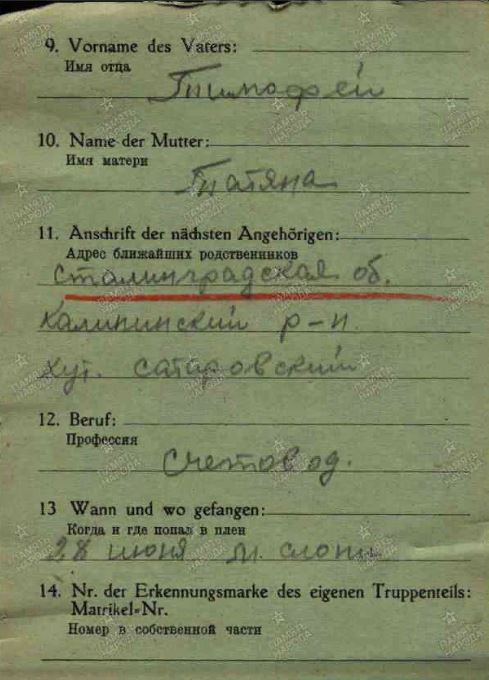 9. Vorname des Vaters:
Имя отца
Тимофей
10. Name der Mutter:
Имя матери
Татяна
11. Anschrift der nächsten Angehörigen:
Адрес ближайших родственников
Сталинградская об.
Калининский р-н.
хут. Сатаровский
12. Beruf:
Профессия
Счетовод.
13 Wann und wo gefangen:
Когда и где попал в плен
28 июня м.
14. Nr. der Erkennungsmarke des eigenen Truppenteils:
Matrikel-Nr.
Номер в собственной части